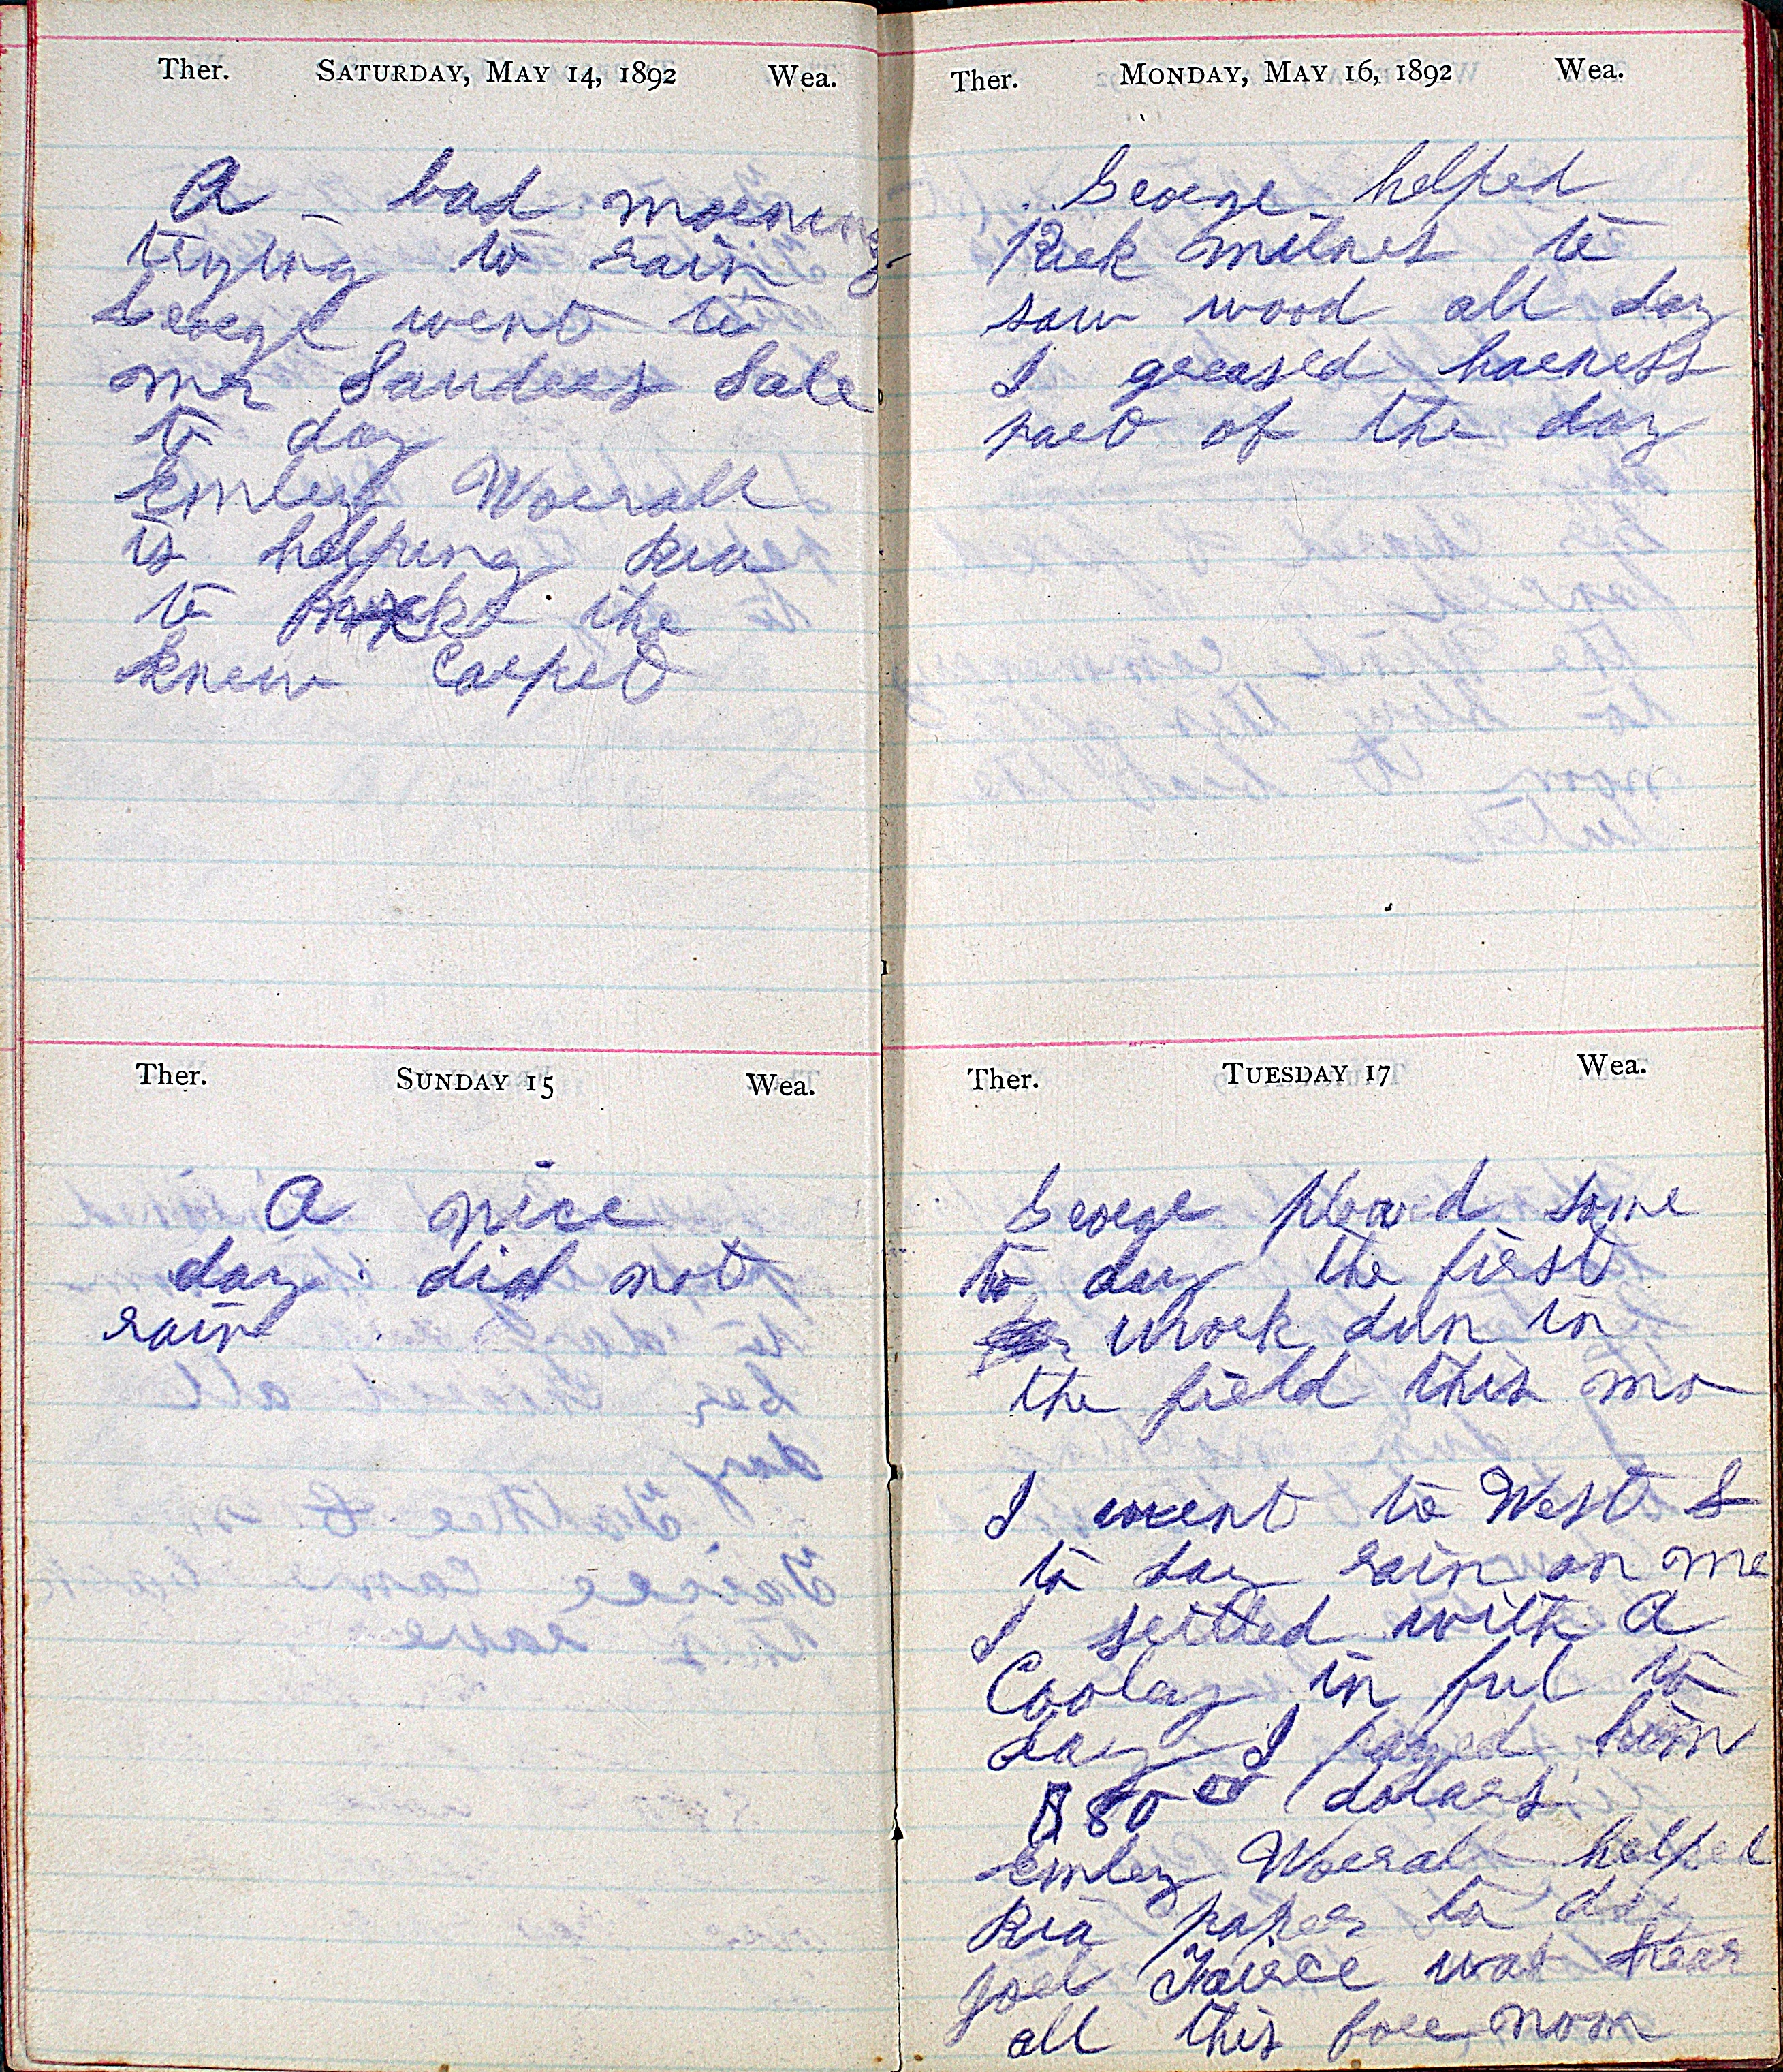 Ther. SATURDAY, MAY 14, 1892 Wea.
A bad morning
trying to rain
George went to
mr Sanders Sale
to day
Emley Worrall
is helping Ria
to make the
knew Carpet
Ther. SUNDAY 15 Wea.
A nice
day did not
rain
Ther. MONDAY, MAY 16, 1892 Wea.
George helped
Rick milnes to
saw wood all day
I greased harness
part of the day
Ther. TUESDAY 17 Wea.
George plowd some
to day the first
work dun in
the field this mo
I went to West S
to day rain on me
I settled with A
Cooley in ful to
day I payed him
$ 80 00 dolars
Emley Worral helped
Ria paper to day
Joel Fairce was hear
all this fore noon